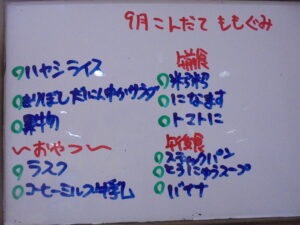 9月こんだて ももぐみ
ハヤシライス
きりぼしだいこんわかサラダ
果物
〜おやつ〜
ラスク
コーヒーミルク 牛乳
午前食
になます
トマトに
午後食
スティックパン
とうにゅうスープ
バナナ